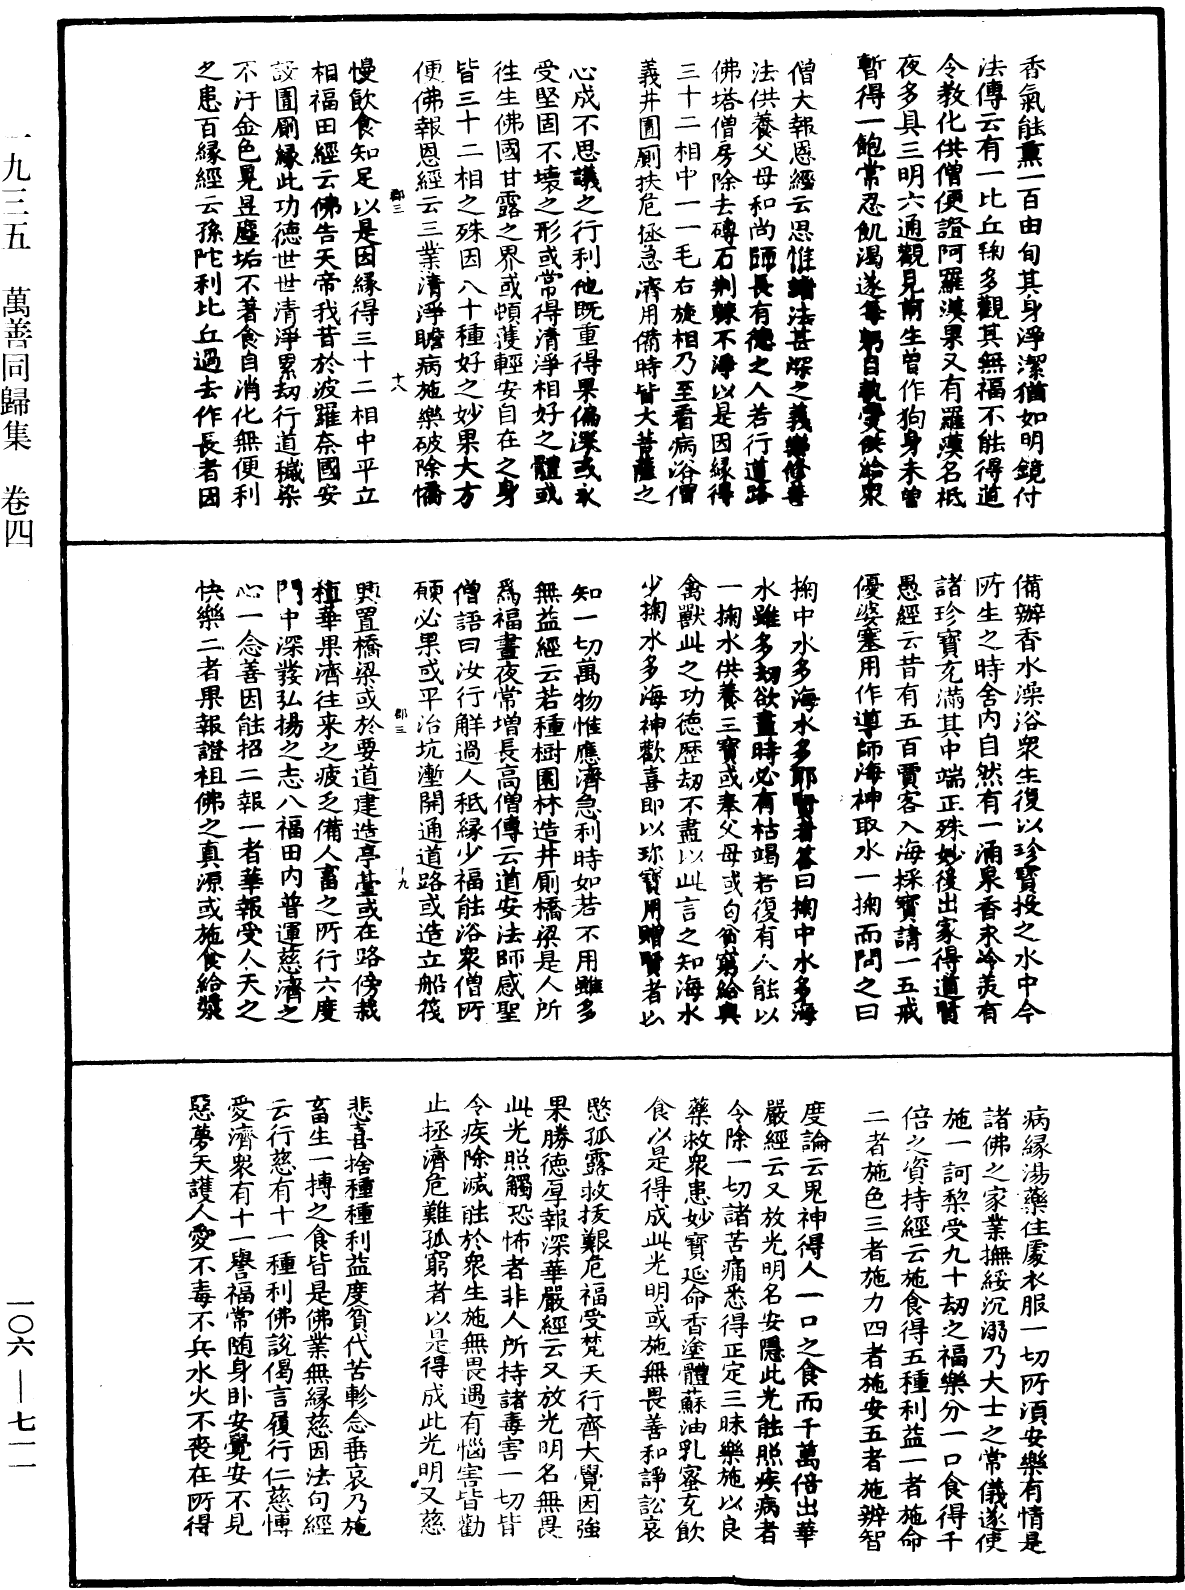 香氣能熏一百由旬其身淨潔猶如明鏡付
法傳云有一比丘鞠多觀其無福不能得道
令教化供僧便證阿羅漢果又有羅漢名祇
夜多具三明六通觀見前生曾作狗身未曾
暫得一飽常忍飢渴遂每躬自執爨供給眾
僧大報恩經云思惟諸法甚深之義樂修善
法供養父母和尚師長有德之人若行道路
佛塔僧房除去磚石荊棘不淨以是因緣得
三十二相中一一毛右旋相乃至看病浴僧
義井圊廁扶危拯急濟用備時皆大菩薩之
心成不思議之行利他既重得果偏深或永
受堅固不壞之形或常得清淨相好之體或
往生佛國甘露之界或頓獲輕安自在之身
皆三十二相之殊因八十種好之妙果大方
便佛報恩經云三業清淨瞻病施樂破除憍
郡三
十八
慢飲食知足以是因緣得三十二相中平立
相福田經云佛告天帝我昔於波羅奈國安
設圊廁緣此功德世世清淨累劫行道穢染
不汙金色晃昱塵垢不著食自消化無便利
之患百緣經云孫陀利比丘過去作長者因
備辦香水澡浴眾生復以珍寶投之水中今
所生之時舍內自然有一涌泉香水冷美有
諸珍寶充滿其中端正殊妙後出家得道賢
愚經云昔有五百賈客入海採寶請一五戒
優婆塞用作導師海神取水一掬而問之曰
掬中水多海水多耶賢者答曰掬中水多海
水雖多劫欲盡時必有枯竭若復有人能以
一掬水供養三寶或奉父母或匃貧窮給與
禽獸此之功德歷劫不盡以此言之知海水
少掬水多海神歡喜即以珍寶用贈賢者出
知一切萬物惟應濟急利時如若不用雖多
無益經云若種樹園林造井廁橋梁是人所
為福晝夜常增長高僧傳云道安法師感聖
僧語曰汝行解過人秪緣少福能浴眾僧所
願必果或平治坑塹開通道路或造立船筏
郡三
十九
興置橋梁或於要道建造亭臺或在路傍栽
植華果濟往來之疲乏備人畜之所行六度
門中深發弘揚之志八福田內普運慈濟之
心一念善因能招二報一者華報受人天之
快樂二者果報證祖佛之真源或施食給漿
病緣湯藥住處衣服一切所須安樂有情是
諸佛之家業撫綏沉溺乃大士之常儀遂使
施一訶棃受九十劫之福樂分一口食得千
倍之資持經云施食得五種利益一者施命
二者施色三者施力四者施安五者施辨智
度論云鬼神得人一口之食而千萬倍出華
嚴經云又放光明名安隱此光能照疾病者
令除一切諸苦痛悉得正定三昧樂施以良
藥救眾患妙寶延命香塗體蘇油乳蜜充飲
食以是得成此光明或施無畏善和諍訟哀
愍孤露救援艱危福受梵天行齊大覺因強
果勝德厚報深華嚴經云又放光明名無畏
此光照觸恐怖者非人所持諸毒害一切皆
令疾除滅能於眾生施無畏遇有惱害皆勸
止拯濟危難孤窮者以是得成此光明又慈
悲喜捨種種利益度貧代苦軫念垂哀乃施
畜生一摶之食皆是佛業無緣慈因法句經
云行慈有十一種利佛說偈言履行仁慈博
愛濟眾有十一譽福常隨身臥安覺安不見
惡夢天護人愛不毒不兵水火不喪在所得
一九三五　萬善同歸集　卷四
一〇六—七一一